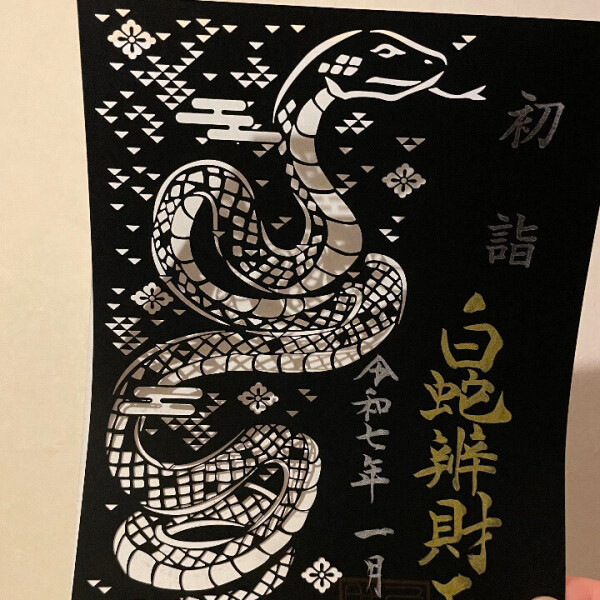 初詣
白蛇辨財
令和七年一月